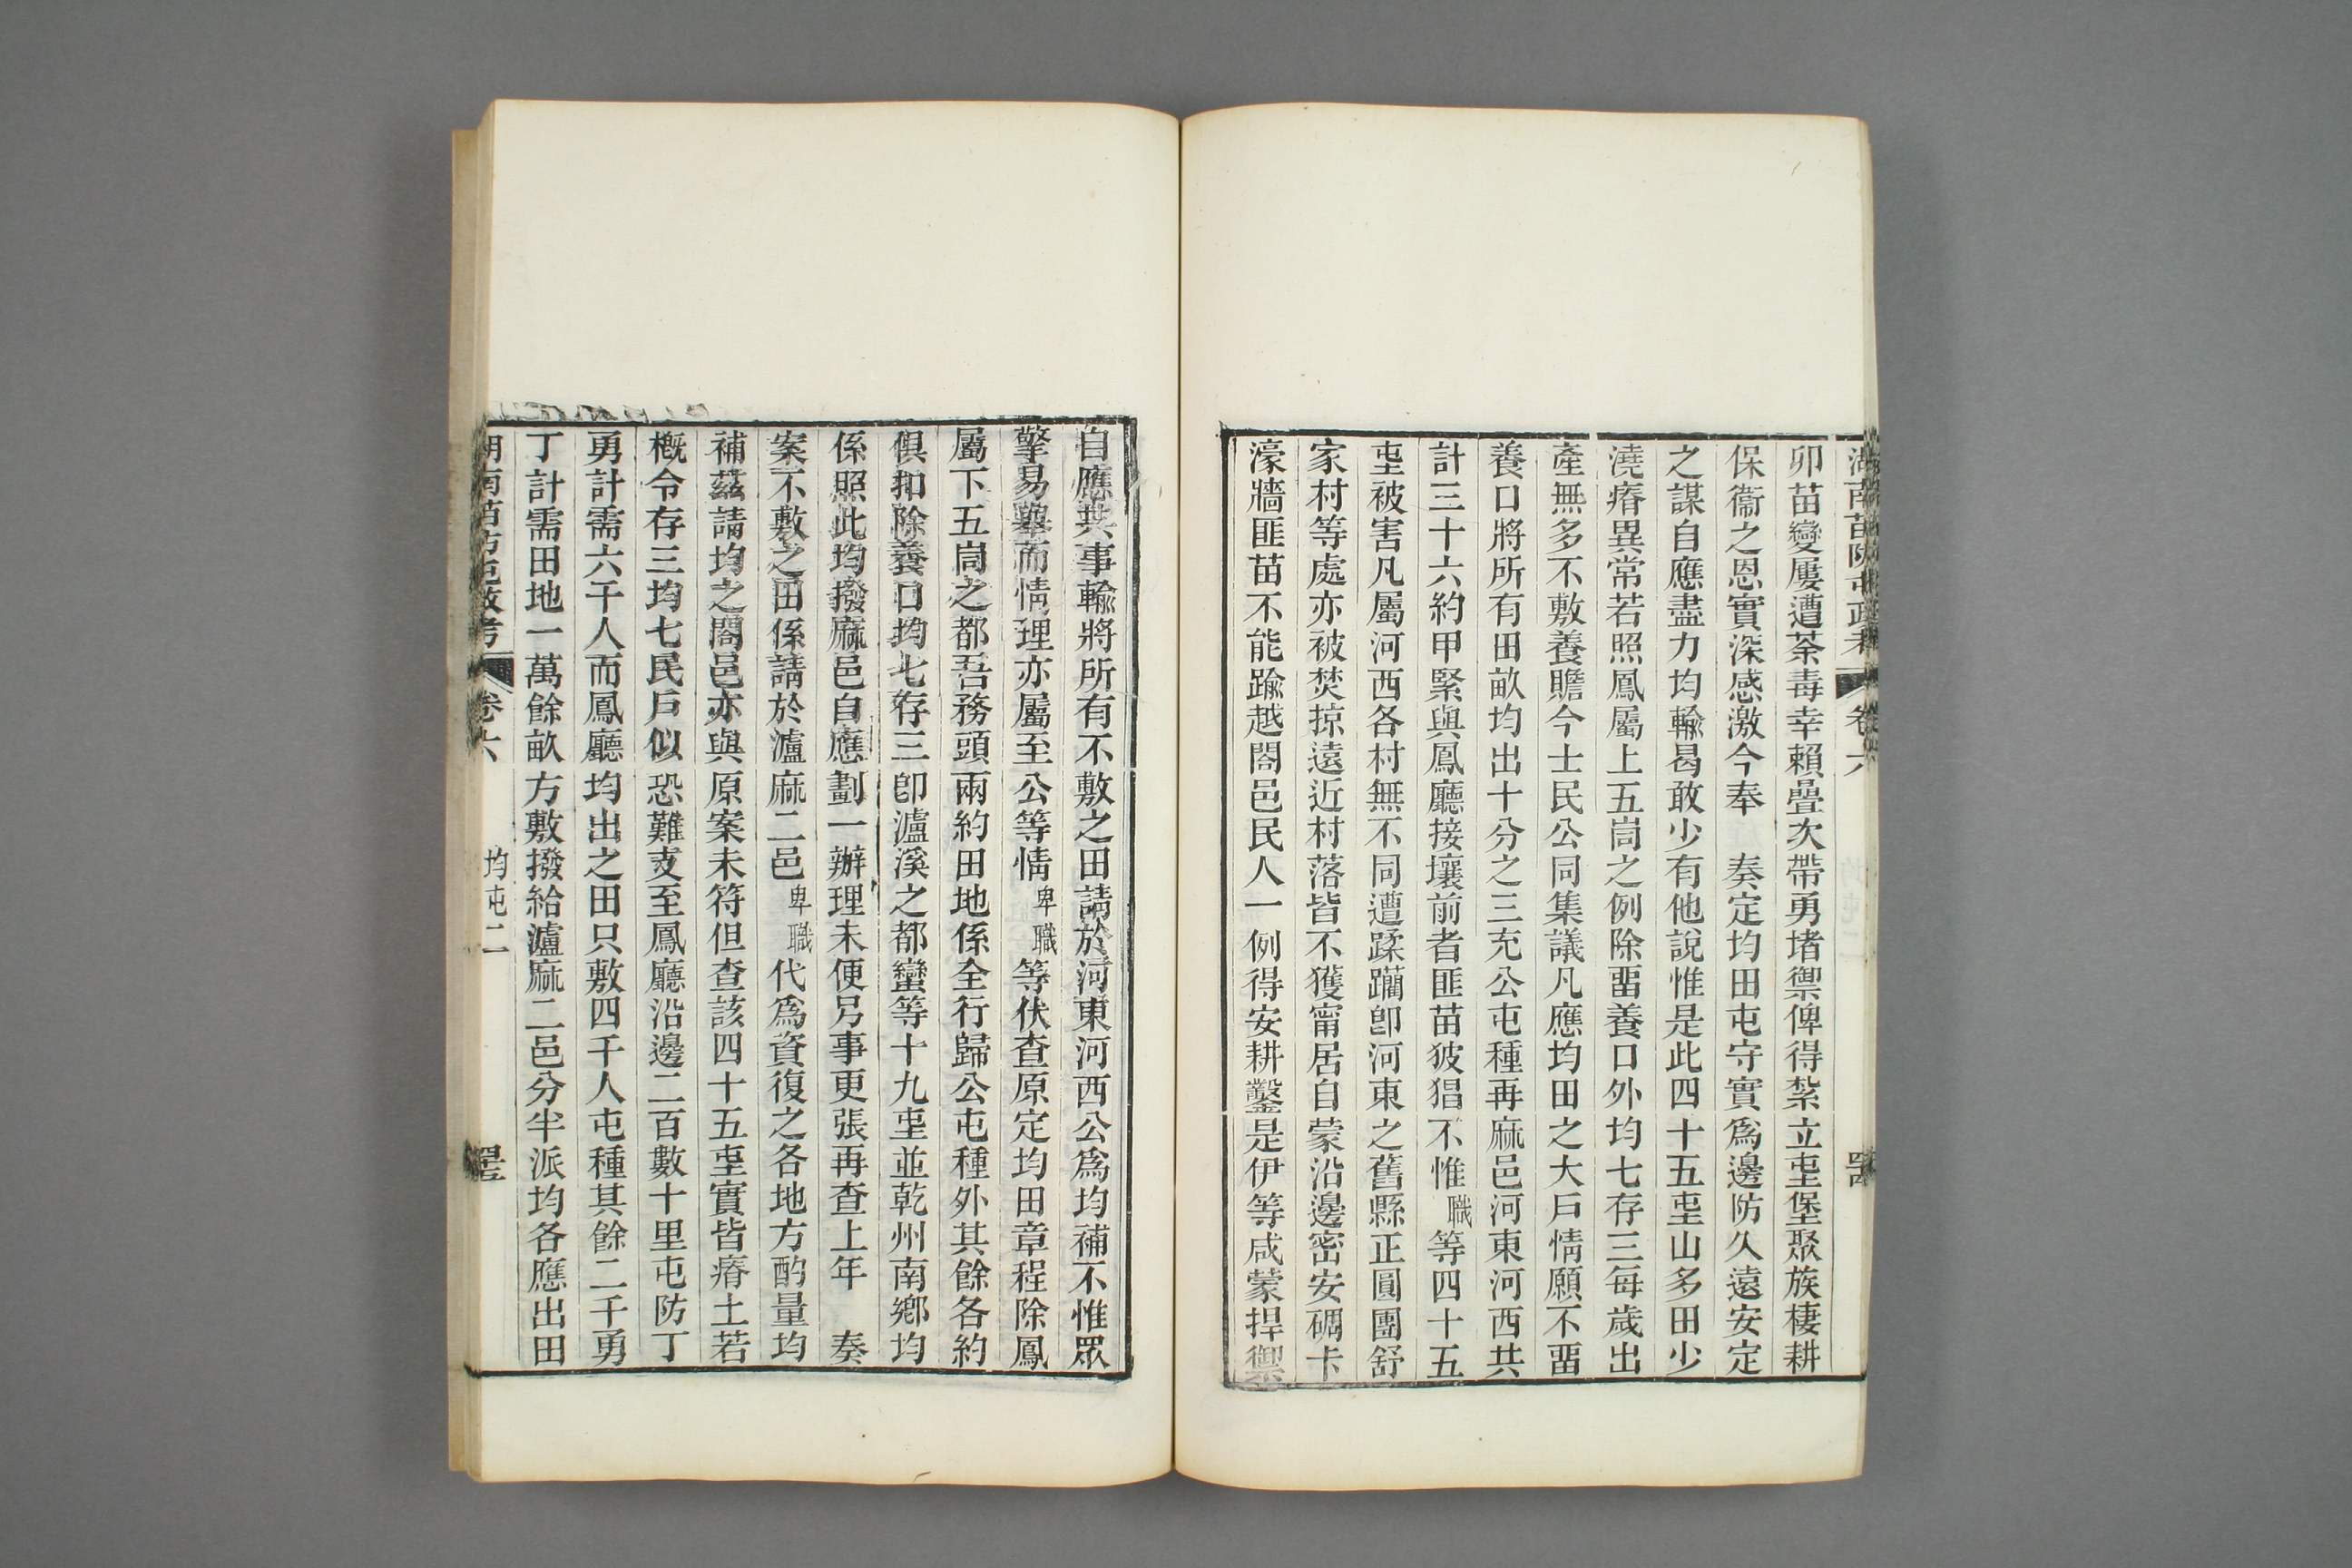 湖南苗防屯政考 卷六
卯苗變屢遭荼毒幸賴疊次帶勇堵禦俾得紮立𡉏堡聚族棲耕
保衞之恩實深感激今奉 奏定均田屯守實爲邊防久遠安定
之謀自應盡力均輸曷敢少有他說惟是此四十五𡉏山多田少
澆瘠異常若照鳳屬上五峝之例除畱養口外均七存三每歲出
產無多不敷養贍今士民公同集議凡應均田之大戶情願不畱
養口將所有田畝均出十分之三充公屯種再麻邑河東河西共
計三十六約甲緊與鳳廳接壤前者匪苗狓猖不惟職等四十五
𡉏被害凡屬河西各村無不同遭蹂躪卽河東之舊縣正圓團舒
家村等處亦被焚掠遠近村落皆不獲甯居自蒙沿邊密安碉卡
濠牆匪苗不能踰越閤邑民人一例得安耕鑿是伊等咸蒙捍禦
自應共事輸將所有不敷之田請於河東河西公爲均補不惟眾
擎易舉而情理亦屬至公等情卑職等伏查原定均田章程除鳳
屬下五峝之都吾務頭兩約田地係全行歸公屯種外其餘各約
俱扣除養口均七存三卽瀘溪之都蠻等十九𡉏並乾州南鄉均
係照此均撥麻邑自應劃一辦理未便另事更張再查上年 奏
案不敷之田係請於瀘麻二邑卑職代爲資復之各地方酌量均
補茲請均之閤邑亦與原案未符但查該四十五𡉏實皆瘠土若
槪令存三均七民戶似恐難支至鳳廳沿邊二百數十里屯防丁
勇計需六千人而鳳廳均出之田只敷四千人屯種其餘二千勇
丁計需田地一萬餘畝方敷撥給瀘麻二邑分半派均各應出田
湖南苗防屯政考 卷六 均屯二